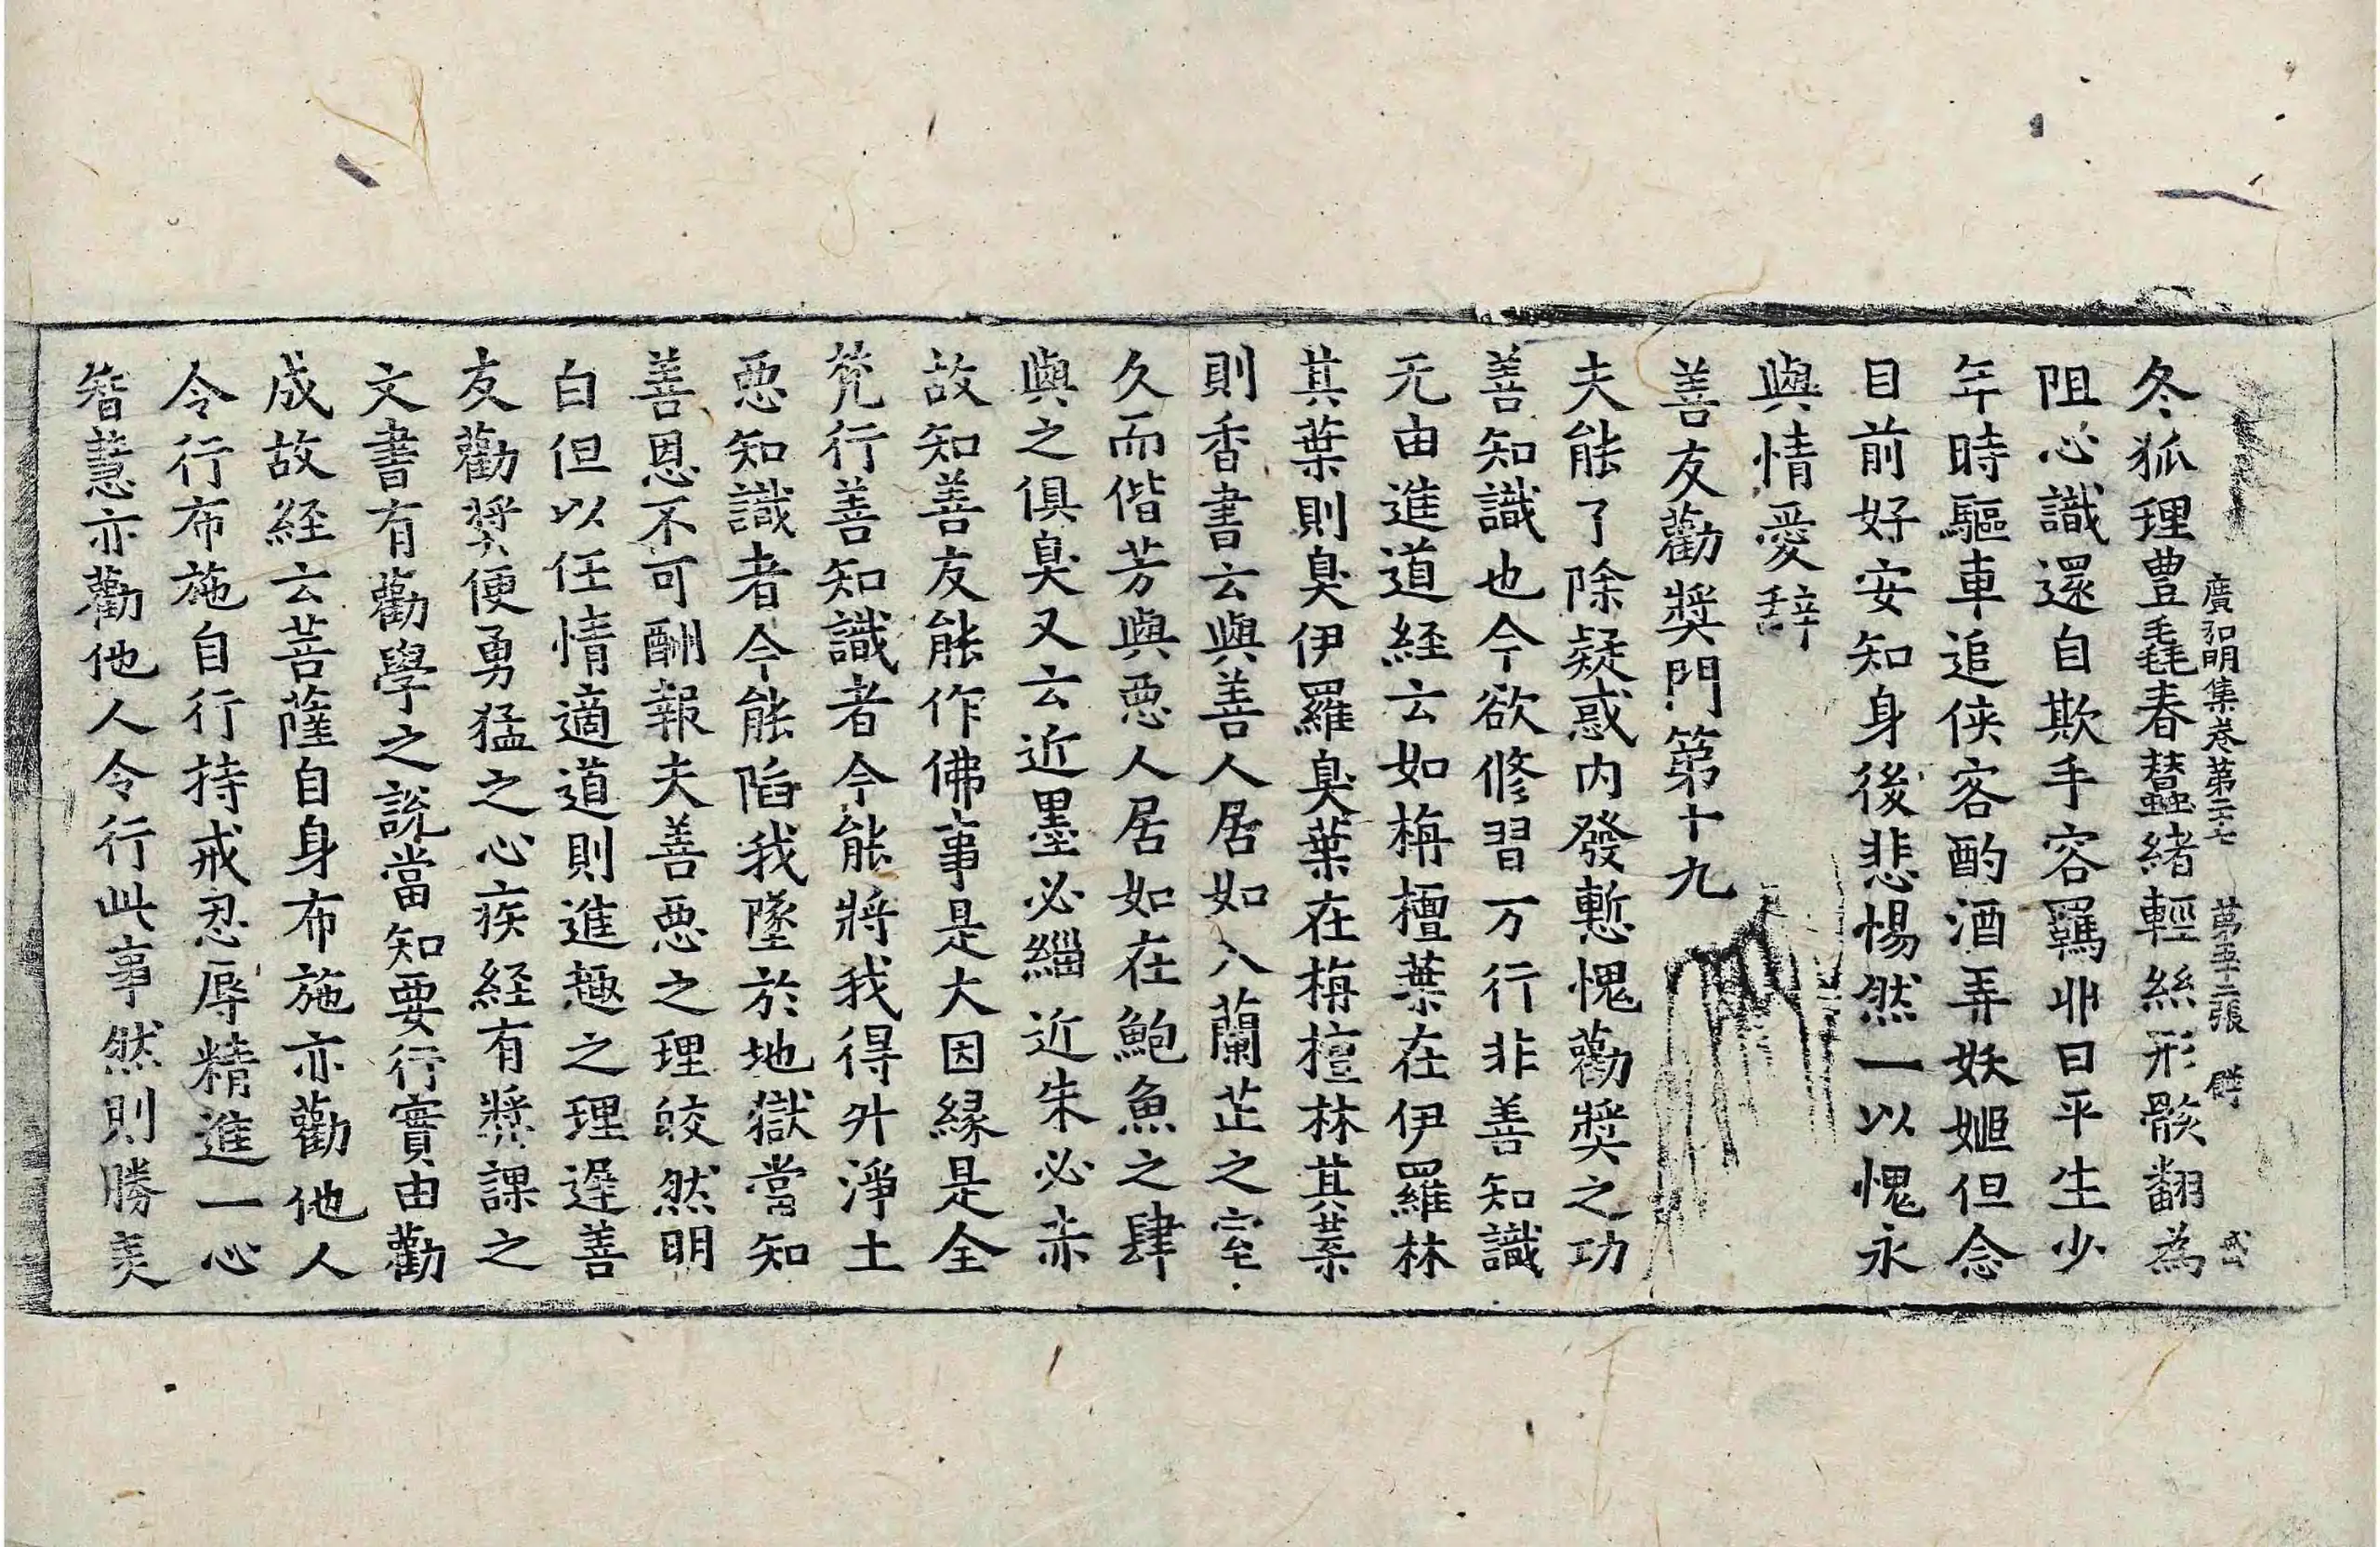 廣弘明集卷第二十七 苐五十二張
冬狐理豊毳春蠶緒輕絲形骸翻為
阻心識還自欺手容羈北曰平生少
年時驅車追俠客酌酒弄妖姬但念
目前好安知身後悲惕然一以愧永
與情愛辞
善友勸奬門第十九
夫能了除疑惑内發慙愧勸奬之功
善知識也今欲修習万行非善知識
无由進道経云如栴檀葉在伊羅林
其葉則臭伊羅臭葉在栴檀林其葉
則香書云與善人居如入蘭芷之室
久而偕芳與惡人居如在鮑魚之肆
與之俱臭又云近墨必緇近朱必赤
故知善友能作佛事是大因縁是全
梵行善知識者今能將我得升淨土
惡知識者今能陷我墜於地獄當知
善恩不可酬報夫善惡之理皎然明
白但以任情適道則進趣之理遲善
友勸奬便勇猛之心疾経有奬課之
文書有勸學之說當知要行實由勸
成故経云菩薩自身布施亦勸他人
令行布施自行持戒忍辱精進一心
智慧亦勸他人令行此事然則勝美